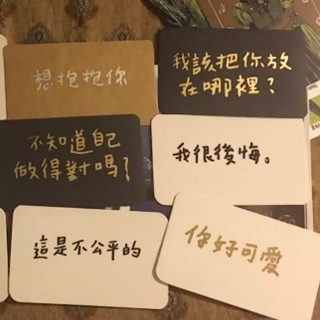 想抱抱你
我該把你放
在哪裡？
不知道自己
做得對嗎？
我很後悔。
這是不公平的
你好可愛